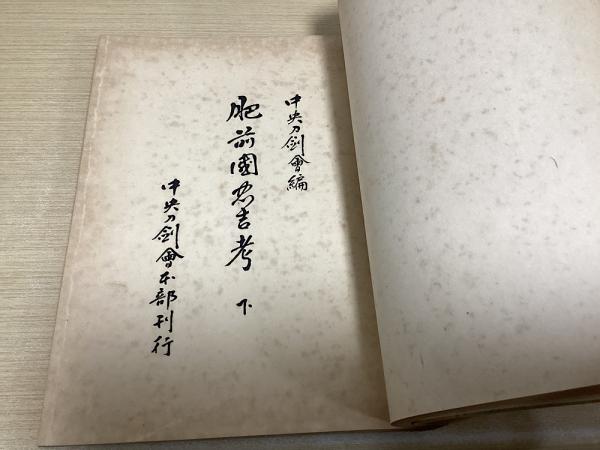 中央刀劍會編
肥前國忠吉考 下
中央刀劍會本部刊行